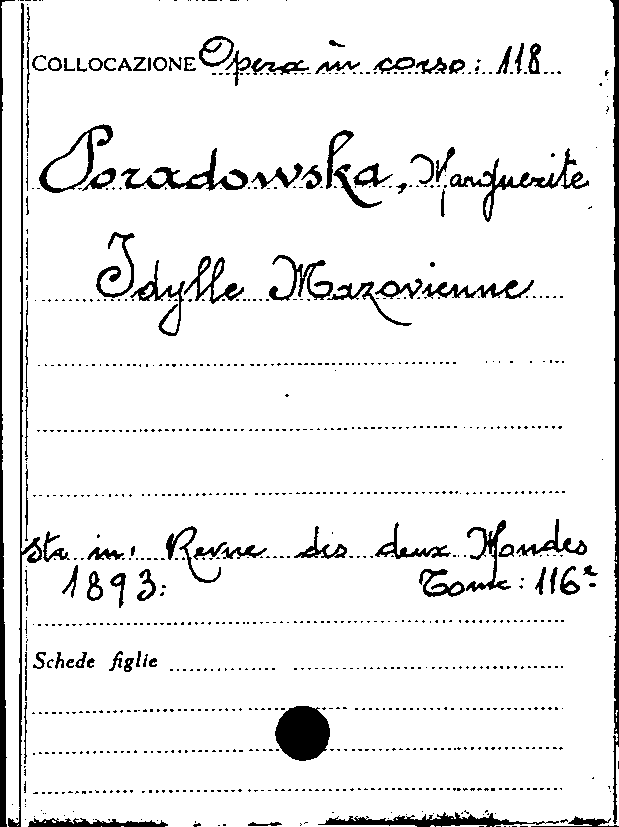 COLLOCAZIONE Opera in corso: 118
Poradowska, Marguerite
Idylle Mazovienne
sta in: Revue des deux Mondes
1893: Tome: 116e
Schede figlie